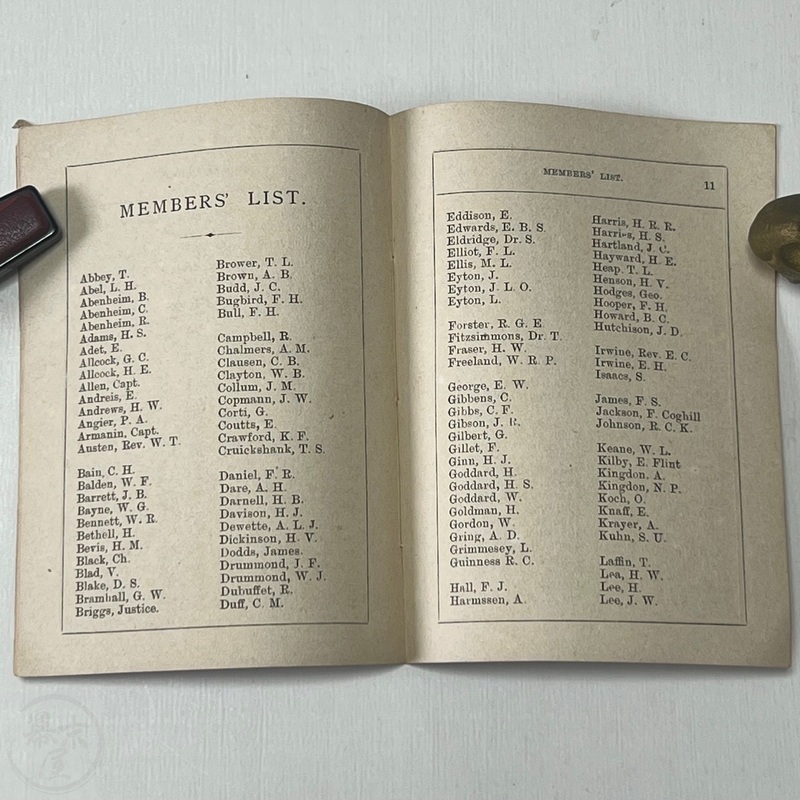 MEMBERS' LIST.
Abbey, T.
Abel, L. H.
Abenheim, B.
Abenheim, C.
Abenheim, R.
Adams, H. S.
Adet, E.
Allcock, G. C.
Allcock, H. E.
Allen, Capt.
Andreis, E.
Andrews, H. W.
Angier, P. A.
Armanin, Capt.
Austen, Rev. W. T.
Bain, C. H.
Balden, W. F.
Barrett, J. B.
Bayne, W. G.
Bennett, W. R.
Bethell, H.
Bevis, H. M.
Black, Ch.
Blad, V.
Blake, D. S.
Bramhall, G. W.
Briggs, Justice.
Brower, T. L.
Brown, A. B.
Budd, J. C.
Bugbird, F. H.
Bull, F. H.
Campbell, R.
Chalmers, A. M.
Clausen, C. B.
Clayton, W. B.
Collum, J. M.
Copmann, J. W.
Corti, G.
Coutts, E.
Crawford, K. F.
Cruickshank, T. S.
Daniel, F. R.
Dare, A. H.
Darnell, H. B.
Davison, H. J.
Dewette, A. L. J.
Dickinson, H. V.
Dodds, James.
Drummond, J. F.
Drummond, W. J.
Dubuffet, R.
Duff, C. M.
MEMBERS' LIST. 11
Eddison, E.
Edwards, E. B. S.
Eldridge, Dr. S.
Elliot, F. L.
Ellis, M. L.
Eyton, J.
Eyton, J. L. O.
Eyton, L.
Forster, R. G. E.
Fitzsimmons, Dr. T.
Fraser, H. W.
Freeland, W. R. P.
George, E. W.
Gibbens, C.
Gibbs, C. F.
Gibson, J. R.
Gilbert, G.
Gillet, F.
Ginn, H. J.
Goddard, H.
Goddard, H. S.
Goddard, W.
Goldman, H.
Gordon, W.
Gring, A. D.
Grimmesey, L.
Guinness R. C.
Hall, F. J.
Harmssen, A.
Harris, H. R. R.
Harris, H. S.
Hartland, J. C.
Hayward, H. E.
Heap. T. L.
Henson, H. V.
Hodges, Geo.
Hooper, F. H.
Howard, B. C.
Hutchison, J. D.
Irwine, Rev. E. C.
Irwine, E. H.
Isaacs, S.
James, F. S.
Jackson, F. Coghill
Johnson, R. C. K.
Keane, W. L.
Kilby, E. Flint
Kingdon. A.
Kingdon, N. P.
Koch, O.
Knaff, E.
Krayer, A.
Kuhn, S. U.
Laffin, T.
Lea, H. W.
Lee, H.
Lee, J. W.